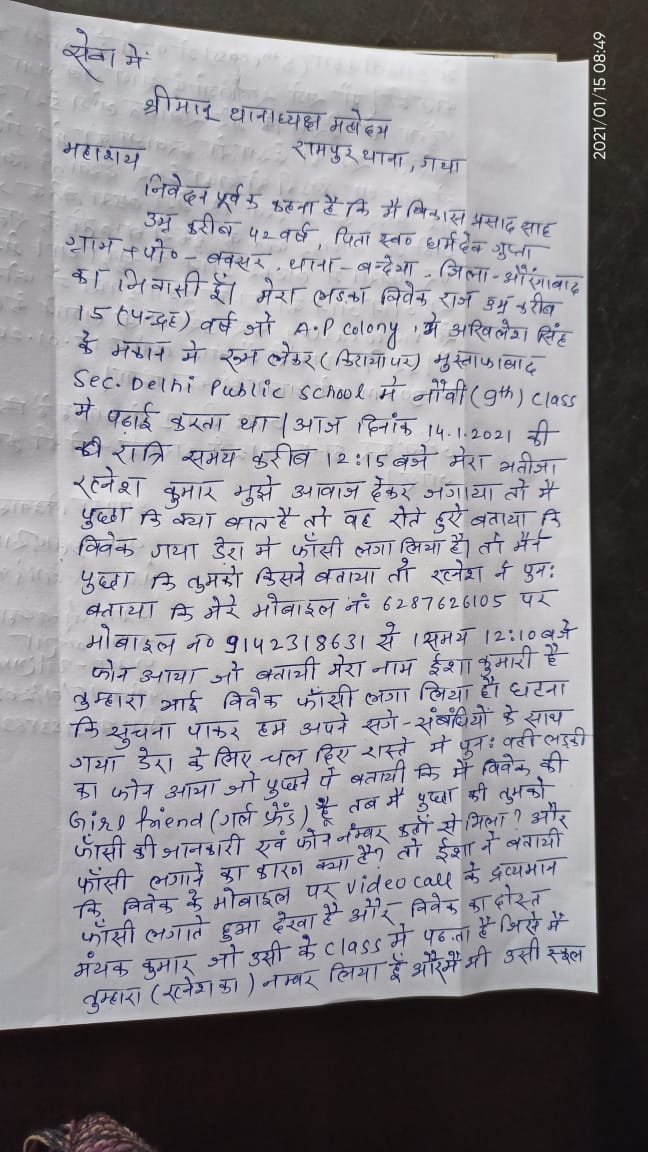 सेवा में
श्रीमान् थानाध्यक्ष महोदय
रामपुर थाना, गया
महाशय
निवेदन पूर्वक कहना है कि मैं विकास प्रसाद साह
उम्र करीब 42 वर्ष, पिता स्व० धर्मदेव गुप्ता
ग्राम + पो० - बक्सर, थाना - बन्देया, जिला - औरंगाबाद
का निवासी हूँ। मेरा लड़का विवेक राज उम्र करीब
15 (पन्द्रह) वर्ष जो A.P colony, में अखिलेश सिंह
के मकान में रूम लेकर (किराया पर) मुस्तफाबाद
Sec. Delhi Public School में नौवीं (9th) class
में पढ़ाई करता था। आज दिनांक 14.1.2021 की
की रात्रि समय करीब 12:15 बजे मेरा भतीजा
रत्नेश कुमार मुझे आवाज देकर जगाया तो मैं
पुछा कि क्या बात है तो वह रोते हुऐ बताया कि
विवेक गया डेरा में फाँसी लगा लिया है। तो मैंने
पुछा कि तुमको किसने बताया तो रत्नेश ने पुन:
बताया कि मेरे मोबाइल नं० 6287626105 पर
मोबाइल न० 9142318631 से समय 12:10 बजे
फोन आया जो बतायी मेरा नाम ईशा कुमारी है
तुम्हारा भाई विवेक फाँसी लगा लिया है। घटना
कि सुचना पाकर हम अपने सगे-संबंधियों के साथ
गया डेरा के लिए चल दिए रास्ते में पुन: वही लड़की
का फोन आया जो पुछने पे बतायी कि मैं विवेक की
Girl friend (गर्ल फ्रेंड) हूँ तब मैं पुछा की तुमको
फाँसी की जानकारी एवं फोन नंम्बर कहाँ से मिला? और
फाँसी लगाने का कारण क्या है? तो ईशा ने बतायी
कि विवेक के मोबाइल पर video call के द्रव्यमान
फाँसी लगाते हुआ देखा है और विवेक का दोस्त
मंयक कुमार जो उसी के class में पढ़ता है जिसे मैं
तुम्हारा (रत्नेश का) नम्बर लिया हूँ और मैं भी उसी स्कूल
2021/01/15 08:49